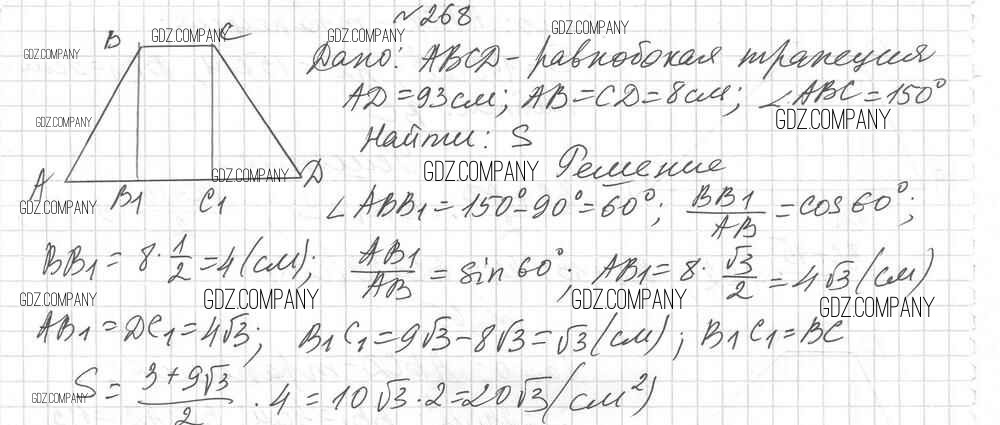 №268
B C
Дано: ABCD - равнобокая трапеция
AD = 93 см; AB = CD = 8 см; ∠ABC = 150°
Найти: S
Решение
A B1 C1 D
∠ABB1 = 150° - 90° = 60°; BB1/AB = cos 60°;
BB1 = 8 · 1/2 = 4 (см); AB1/AB = sin 60°; AB1 = 8 · √3/2 = 4√3 (см)
AB1 = DC1 = 4√3; B1C1 = 9√3 - 8√3 = √3 (см); B1C1 = BC
S = 3 + 9√3/2 · 4 = 10√3 · 2 = 20√3 (см²)
GDZ.COMPANY
GDZ.COMPANY
GDZ.COMPANY
GDZ.COMPANY
GDZ.COMPANY
GDZ.COMPANY
GDZ.COMPANY
GDZ.COMPANY
GDZ.COMPANY
GDZ.COMPANY
GDZ.COMPANY
GDZ.COMPANY
GDZ.COMPANY
GDZ.COMPANY